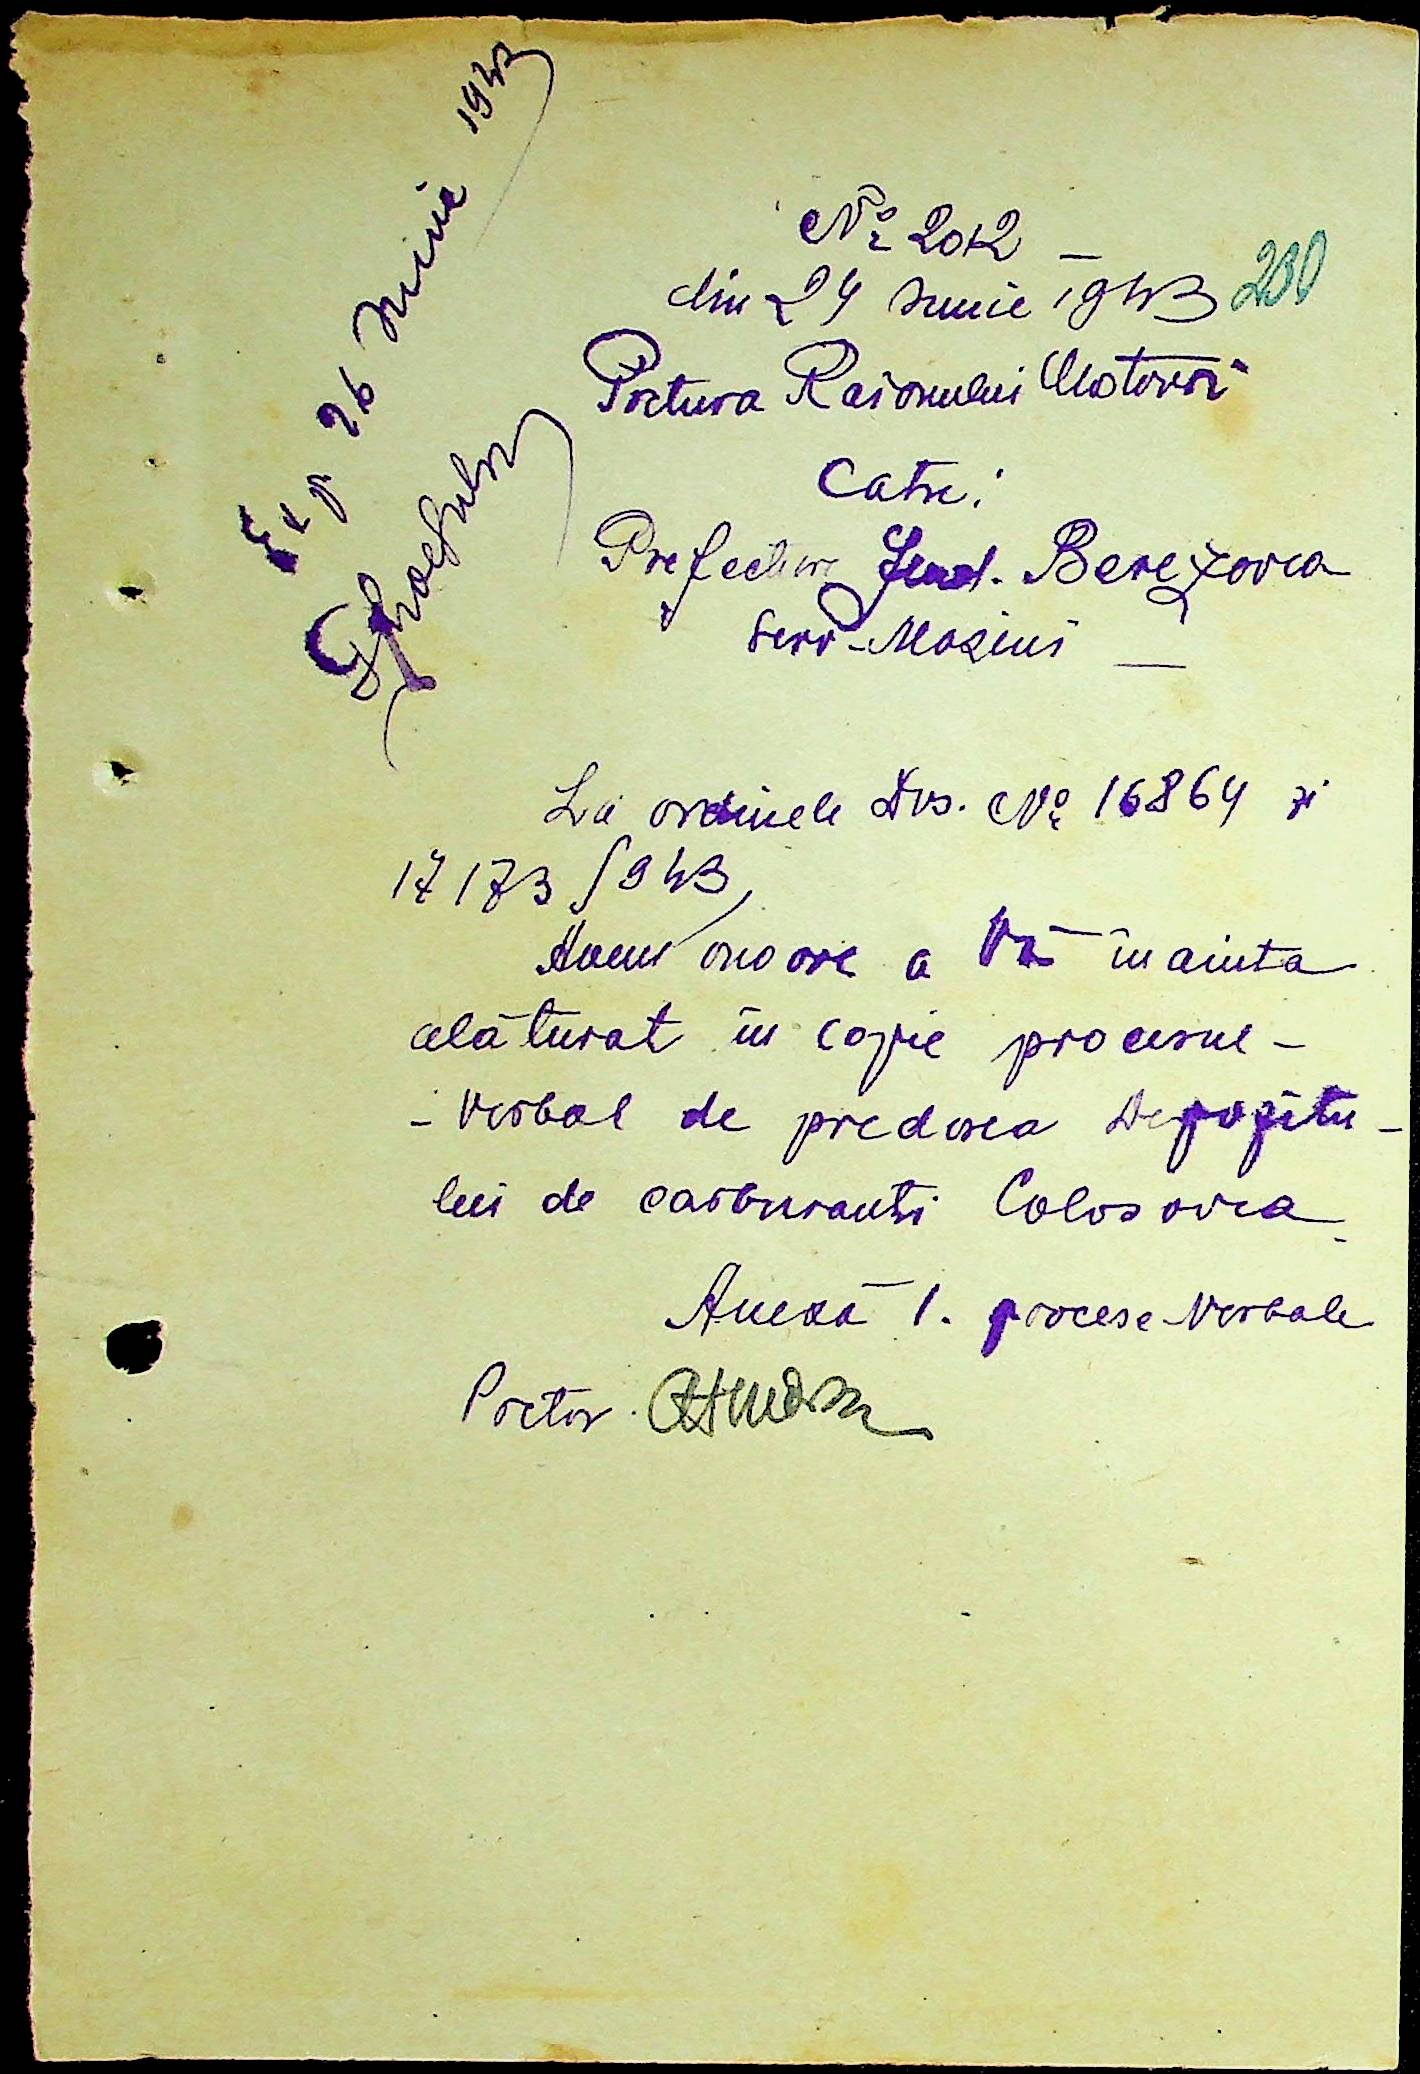 Exp. 26 Iunie 1943
Nr. 2012
din 24 Iunie 1943
230
Pretura Raionului Mostovoi
Catre:
Prefectura Jud. Berezovca
Serv. Mașini
La ordinele Dvs. Nr. 16864 și
17173/943,
Avem onoare a Vă înainta
alăturat în copie procesul-
-Verbal de predarea Depozitu-
lui de carburanți Colosovca
Anexă 1. procese Verbale
Pretor